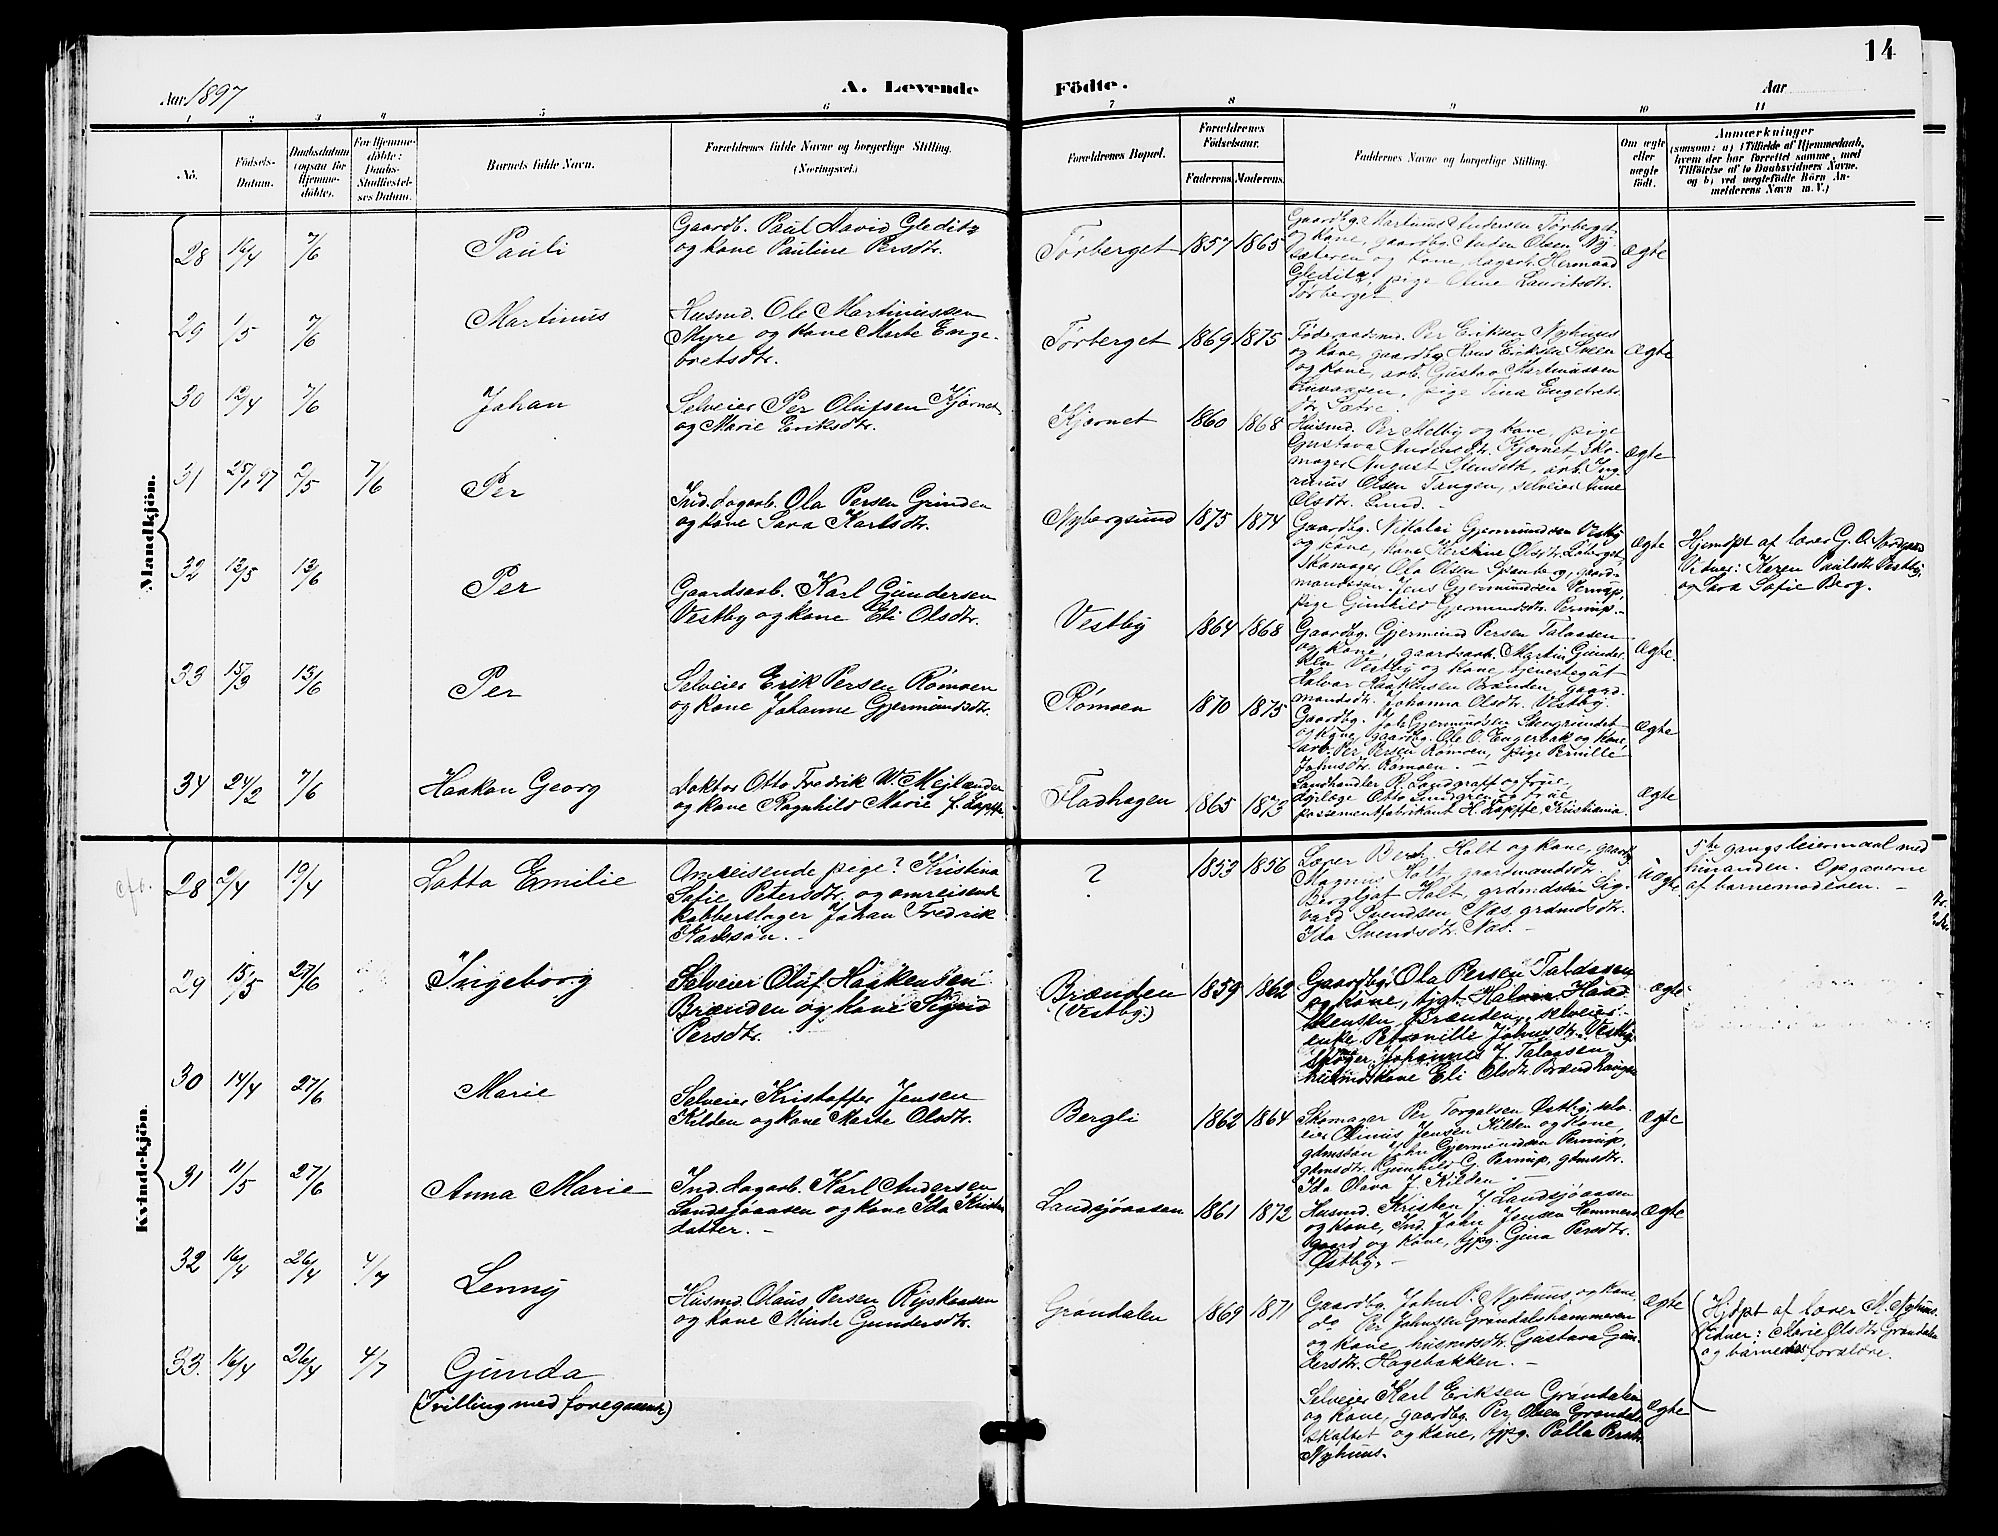 14
Aar 1897
A. Levende
Födte.
Aar
1 2 3 4 5 6 7 8 9 10 11
No.
Fødsels-
Datum.
Daabsdatum
(ogsaa for
Hjemme-
døbte).
For Hjemme-
døbte:
Daabs-
Stadfæstel-
ses Datum.
Barnets fulde Navn.
Forældrenes fulde Navne og borgerlige Stilling.
(Næringsvei.)
Forældrenes Bopæl.
Forældrenes
Fødselsaar.
Faderens. Moderens.
Faddernes Navne og borgerlige Stilling.
Om ægte
eller
uægte
født.
Anmærkninger
(saasom: a) i Tilfælde af Hjemmedaab,
hvem der har forrettet samme, med
Tilføielse af to Daabsvidners Navne,
og b) ved uægtefødte Børn An-
melderens Navn m. V.)
Mandkjön.
28 16/4 7/6
Pauli
Gaardb. Paul David Gleditz
og kone Pauline Persdtr.
Törberget 1857 1865
Gaardbg. Martinus Andersen Törberget
og kone, gaardbg. Anden Olsen Ny-
sæteren og kone, dagarb. Herman
Gleditz, pige Oline Lauritsdtr.
Törberget.
Ægte
29 1/5 7/6
Martinus
Husmd. Ole Martinussen
Myre og kone Marte Enge-
bretsdtr.
Törberget 1869 1875
Föderaadsmd. Per Eriksen Nyhuus
og kone, gaardbg. Hans Eriksen Sveen
og kone, arb. Gustav Martinussen
pige Tina Engebrets
dtr. Sætre.
Ægte
30 12/4 7/6
Johan
Selveier Per Olufsen Kjörnet
og Marie Eriksdtr.
Kjörnet 1860 1868
Husmd. Per Melby og kone, pige
Gustava Andersdtr. Kjörnet, Sko-
mager August Stenseth, arb. Ing-
rinus Olsen Tangen, selveier Anne
Olsdtr. Lund.
Ægte
31 25/1 97 2/5 7/6
Per
Ind. dagarb. Ola Persen Grinden
og kone Sara Karlsdtr.
Nybergsund 1875 1874
Gaardbg. Nikolai Gjermundsen Vestby
og kone, kone Kerstine Olsdtr. Löberget,
Skomager Ola Olsen Spanberg, gaard-
mandssön Jens Gjermundsen Pernup,
pige Gunhild Gjermundsdtr. Pernup.
Ægte
Hjemdpt af lærer G. O. Nordgaard
Vidner: Karen Paulsdtr. Vestby,
og Sara Sofie Berg.
32 12/5 13/6
Per
Gaardsarb. Karl Gundersen
Vestby og kone Eli Olsdtr.
Vestby 1864 1868
Gaardbg. Gjermund Persen Talaasen
og kone, gaardsarb. Martin Gunder-
sen Vestby og kone, tjenestegut
Halvar Haakensen Brænden, gaard-
mandsdtr. Johanna Olsdtr. Vestby.
Ægte.
33 15/3 13/6
Per
Selveier Erik Persen Römoen
og kone Johanne Gjermundsdtr.
Römoen 1870 1875
Gaardbg. Joh. Gjermundsen Stengrundet
og kone, gaardbg. Ole O. Engerbak og kone,
arb. Per Persen Römoen, pige Pernille
Johnsdtr. Römoen.
Ægte
34 24/2 7/6
Haakon Georg
Doktor Otto Fredrik W. Mejlænder
og kone Ragnhild Marie f. Loppe.
Fladhagen 1865 1873
Landhandler R. Landgraff og frue,
dyrlæge Otto Lundgren og frue
possementfabrikant H. Loppe, Kristiania.
Ægte
Kvindekjön.
28 2/4 19/4
Lotta Emilie
Omreisende pige? Kristina
Sofie Petersdtr. og omreisende
kobberslager Johan Fredrik
Karlsön.
? 1853 1856
Lærer Bernt Holt og kone, gaardbg.
Magnus Holt, gaardmandsdtr.
Bergljot Holt, grdmdssön Sig-
vard Svendsen Næs, grdmdsdtr.
Ida Svendsdtr. Næs.
Uægte
5te gangs leiermaal med
hinanden. Opgaverne
af barnemoderen.
29 15/5 27/6
Ingeborg
Selveier Oluf Haakensen
Brænden og kone Signe
Persdtr.
Brænden
(Vestby) 1859 1862
Gaardbg. Ola Persen Talaasen
og kone, tjgt. Halvar Haa-
kensen Brænden, selveier-
enke Pernille Johnsdtr. Vestby,
Johannes J. Talaasen,
husmdskone Eli Olsdtr. Brændhaugen
Ægte
30 14/4 27/6
Marie
Selveier Kristoffer Jensen
Kilden og kone Marte Olsdtr.
Bergli 1862 1864
Skomager Per Torgalsen Østby, selv-
eier Olinus Jensen Kilden og kone,
gdmssön John Gjermundsen Pernup,
gdmsdtr. Gunhild G. Pernup, gdmsdtr.
Ida Olava J. Kilden.
Ægte
31 11/5 27/6
Anna Marie
Ind. dagarb. Karl Andersen
Landsjöaasen og kone Ida Kristen-
datter.
Landsjöaasen 1861 1872
Husmd. Kristen J. Landsjöaasen
og kone, Ind. John Jensen Hemmers-
gaard og kone, tjpg. Gina Persdtr.
Østby.
Ægte
32 16/4 26/4 4/7
Lenny
Husmd. Olaus Persen Ryskaasen
og kone Minde Gundersdtr.
Gröndalen 1869 1871
Gaardbg. John P. Nyhuus og kone,
do Per Johnsen Gröndalshammeren
og kone, husmdsdtr. Gustava Gun-
dersdtr. Hagebakken.
Ægte
Hjdpt af lærer M. Nyhuus.
Vidner: Marie Olsdtr. Gröndalen
og barnets forældre.
33. 16/4 26/4 4/7
Gunda
(Tvilling med foregaaende)
Selveier Karl Eriksen Gröndalen
og kone, gaardbg. Per Olsen Gröndals-
skaftet og kone, tjpg. Palla Persdtr.
Nyhuus.
Ægte